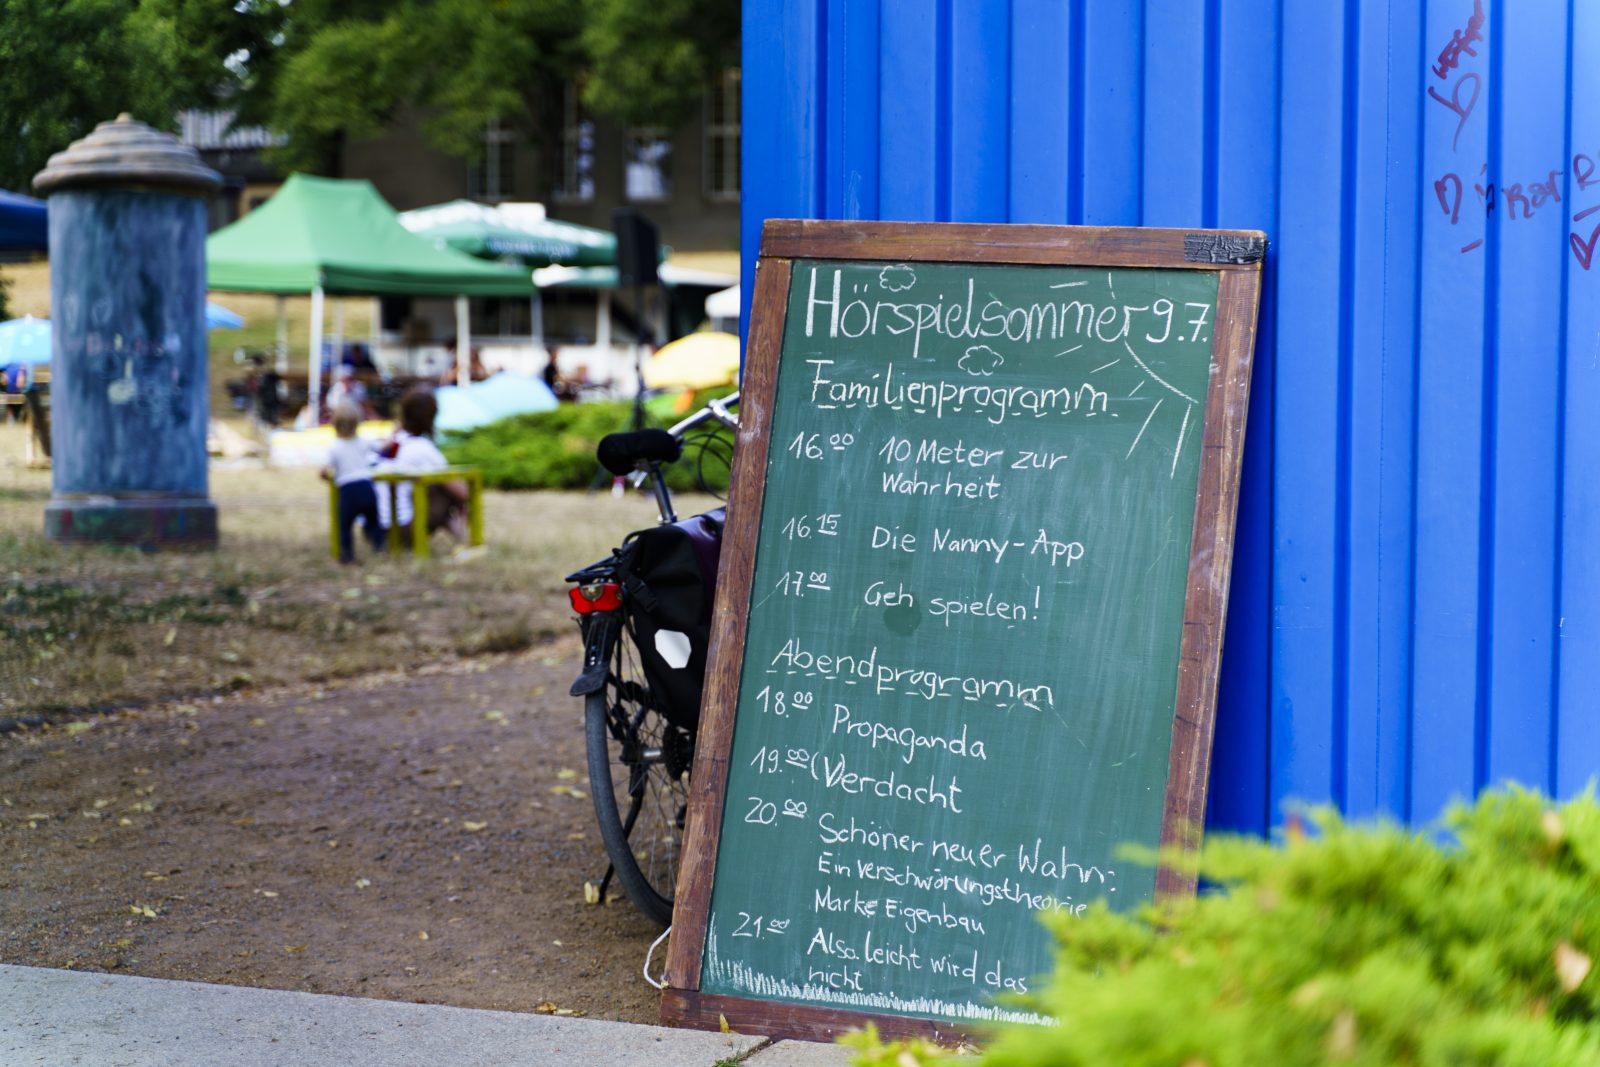 Hörspielsommer 9.7.
Familienprogramm
16.00 10 Meter zur
Wahrheit
16.15 Die Nanny-App
17.00 Geh spielen!
Abendprogramm
18.00 Propaganda
19.00 (Verdacht
20.00 Schöner neuer Wahn:
Ein verschwörungstheorie
Marke Eigenbau
21.00 Also leicht wird das
nicht